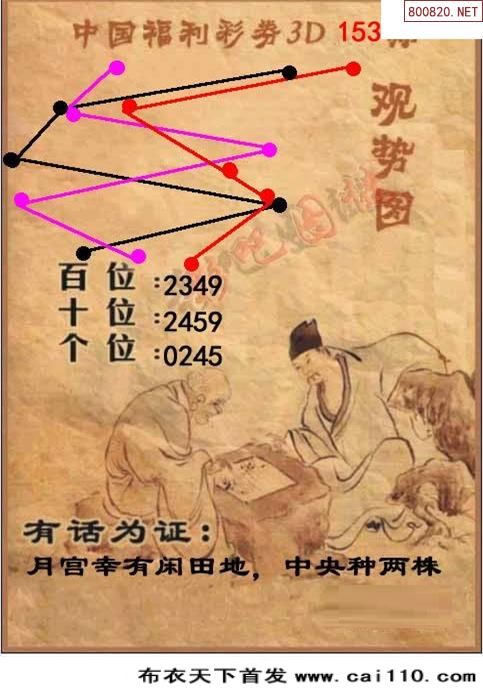 800820.NET
中国福利彩券3D 153
观势图
百位:2349
十位:2459
个位:0245
有话为证:
月宫幸有闲田地，中央种两株
布衣天下首发 www.cai110.com